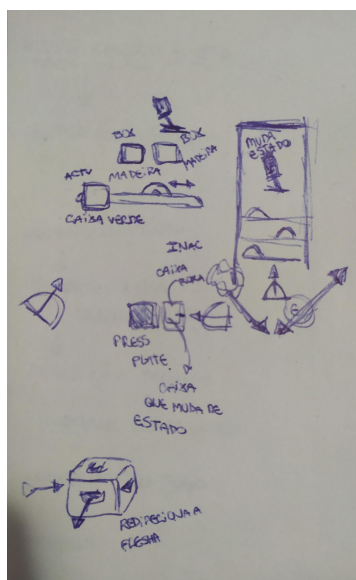 BOX
BOX
MADEIRA
MADEIRA
ACTV
CAIXA VERDE
MUDA
ESTADO
INAC
CAIXA
ROXA
PRESS
PLATE.
CAIXA
QUE MUDA DE
ESTADO
REDIRECIONA A
FLESHA